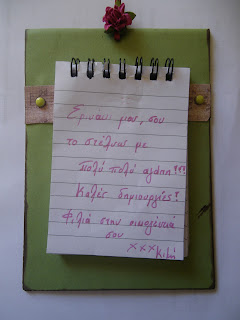 μας, σου
το στέλνω με
πολύ πολύ αγάπη!!!
Καλές δημιουργίες!
Φιλιά στην οικογένειά
σου
xxx